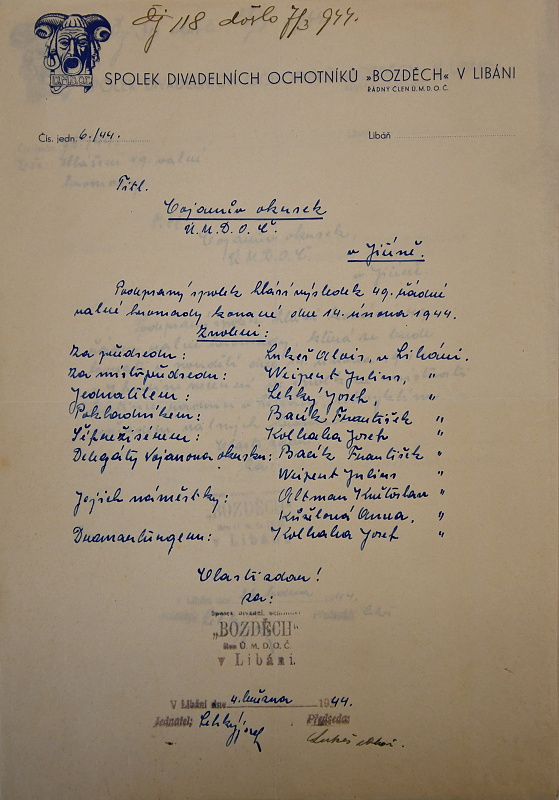 Čj 118 došlo 7/3 944.
SPOLEK DIVADELNÍCH OCHOTNÍKŮ »BOZDĚCH« V LIBÁNI
ŘÁDNÝ ČLEN Ú. M. D. O. Č.
Čís. jedn. 6./44.
Libáň
Titl.
Vojanův okrsek
Ú.M.D.O.Č.
v Jičíně.
Podepsaný spolek hlásí výsledek 49. řádné
valné hromady konané dne 14. února 1944.
Zvoleni:
Za předsedu: Lukeš Alois, v Libáni.
Za místopředsedu: Weipent Julius, "
Jednatelem: Lehký Josef, "
Pokladníkem: Bacík František "
Šéfrežisérem: Kolhaha Josef "
Delegáty Vojanova okrsku: Bacík František "
Weipent Julius "
Jejich náměstky: Altman Květoslav "
Anna, "
Dramaturgem: Kolhaha Josef "
Vlasti zdar!
za:
Spolek divadel. ochotníků
„BOZDĚCH"
člen Ú. M. D. O. Č.
v Libáni.
V Libáni dne 4. března 1944.
Jednatel: Lehký Josef Předseda:
Lukeš Alois.